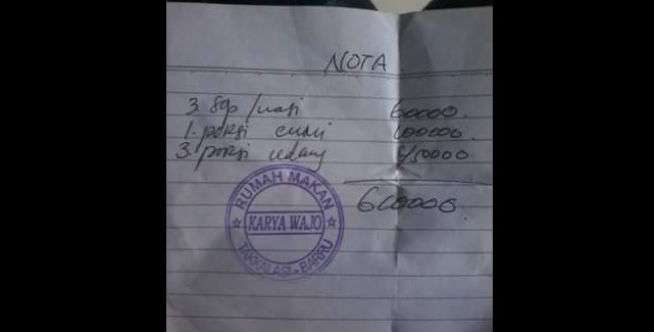 NOTA
3. Sop / nasi 60000.
1. porsi cumi 100000.
3. porsi udang 450000
600000.
RUMAH MAKAN
KARYA WAJO
TAKKALASI - BARRU